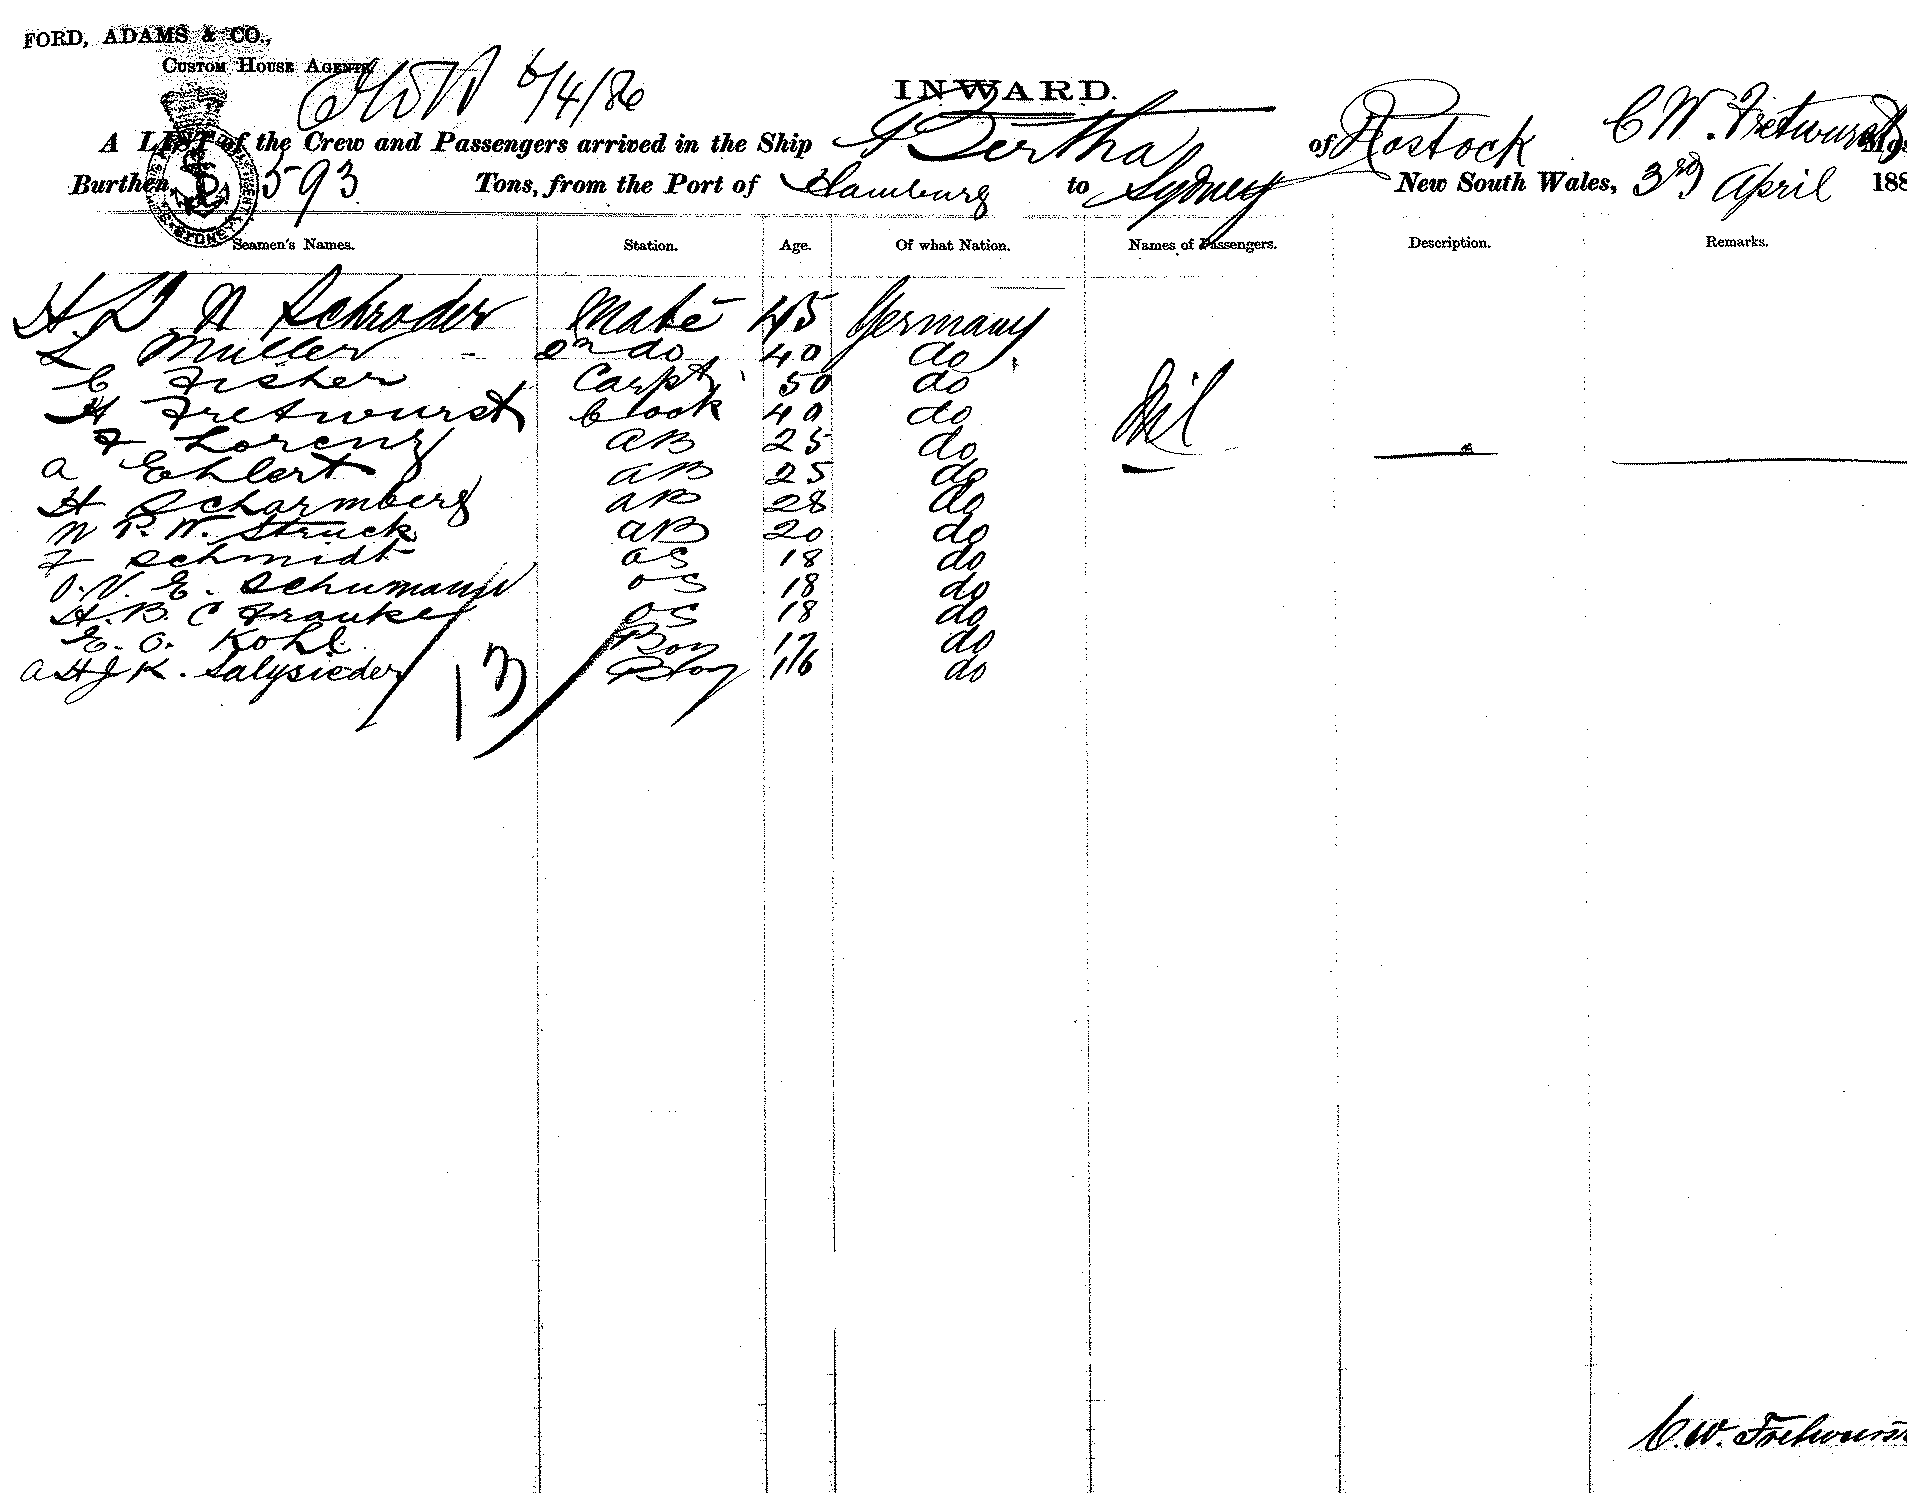 FORD, ADAMS & CO.,
CUSTOM HOUSE AGENTS
6/4/86
INWARD.
A LIST of the Crew and Passengers arrived in the Ship Bertha of Rostock C W. Fretwurst
Burthen, 593 Tons, from the Port of Hamburg to Sydney New South Wales, 3rd April 188
SYDNEY
Seamen's Names. Station. Age. Of what Nation. Names of Passengers. Description. Remarks.
H. D. N Schroder Mate 45 Germany
L Muller 2n do 40 do
C Fisher Carpt 50 do
H Fretwurst Cook 40 do
F Lorenz AB 25 do
A Ehlert AB 25 do
H Scharmberg AB 28 do
N P. W. Struck AB 20 do
F Schmidt OS 18 do
O. V. E. Schumann OS 18 do
H. B. C Franke OS 18 do
E. O. Kohl Boy 17 do
A H J K. Salysieder Boy 16 do
Nil
13
C. W. Fretwurst